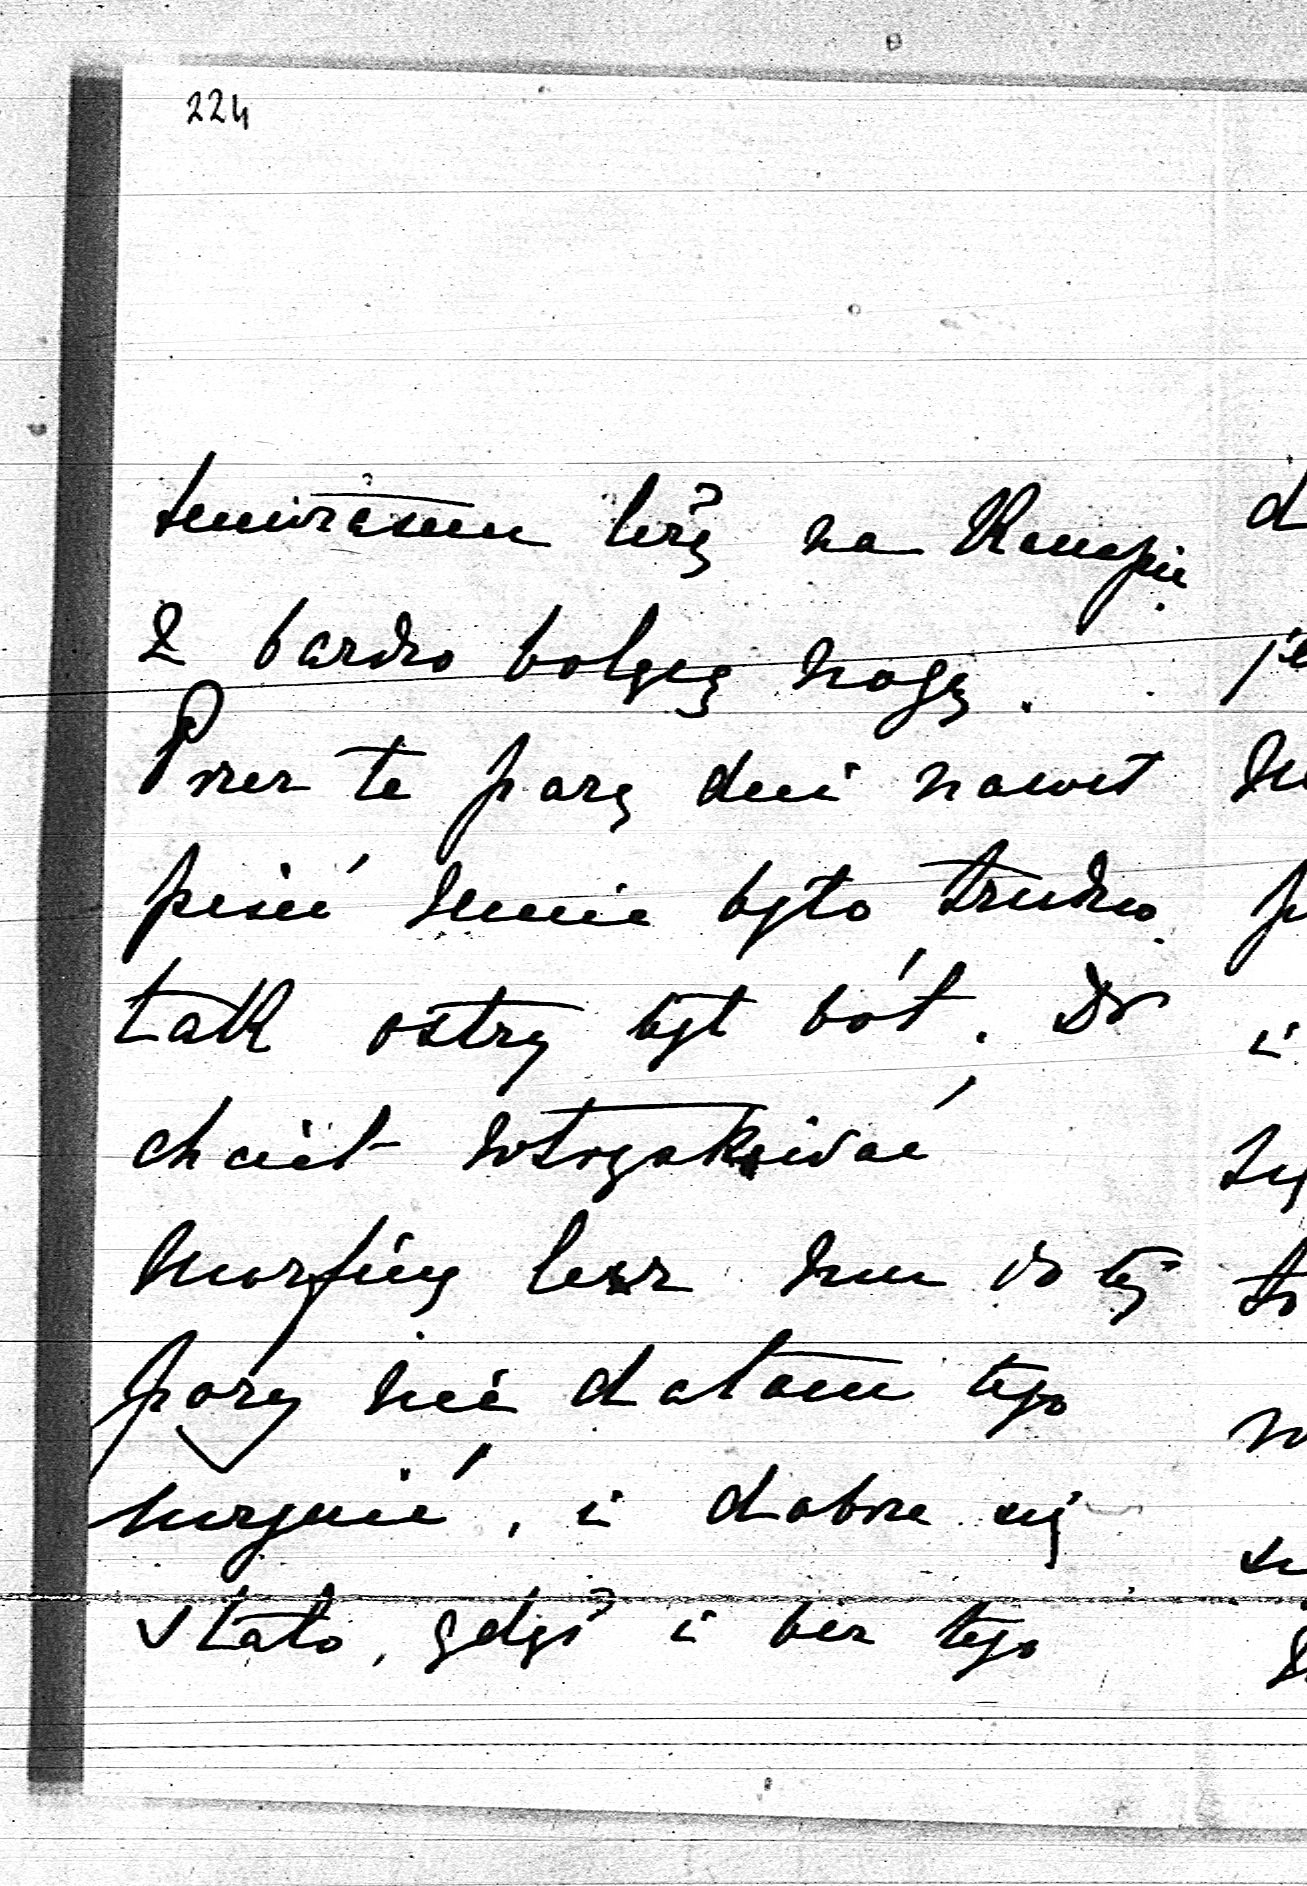 224
tymczasem leżę na Kanapie
z bardzo bolącą nogą.
Przez te parę dni nawet
pisać mnie było trudno
tak ostry był ból. Dr
chciał wstrzykiwać
morfinę lecz mu do tej
pory nie dałam tego
uczynić, i dobrze się
stało, gdyż i bez tego